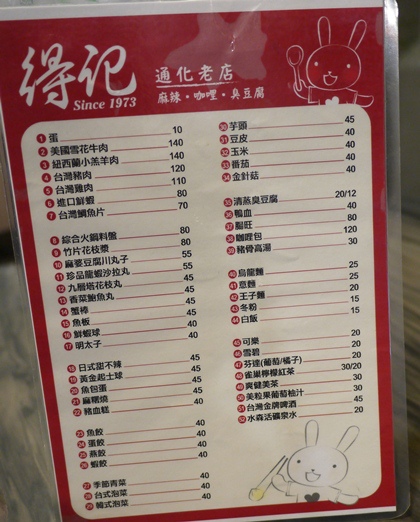 得记
Since 1973
通化老店
麻辣・咖哩・臭豆腐
1 蛋 10
2 美國雪花牛肉 140
3 紐西蘭小羔羊肉 140
4 台灣豬肉 120
5 台灣雞肉 110
6 進口鮮蝦 80
7 台灣鯛魚片 70
8 綜合火鍋料盤 80
9 竹片花枝漿 80
10 麻婆豆腐川丸子 55
11 珍品龍蝦沙拉丸 55
12 九層塔花枝丸 45
13 香菜鮑魚丸 45
14 蟹棒 45
15 魚板 45
16 鮮蝦球 40
17 明太子 40
18 日式甜不辣 45
19 黃金起士球 45
20 魚包蛋 45
21 麻糬燒 40
22 豬血糕 40
23 魚餃 40
24 蛋餃 40
25 燕餃 40
26 蝦餃 40
27 季節青菜 40
28 台式泡菜 40
29 韓式泡菜 40
30 芋頭 45
31 豆皮 40
32 玉米 40
33 番茄 40
34 金針菇 40
35 清蒸臭豆腐 20/12
36 鴨血 40
37 腸旺 80
38 咖哩包 120
39 豬骨高湯 30
40 烏龍麵 25
41 意麵 25
42 王子麵 20
43 冬粉 15
44 白飯 15
45 可樂 20
46 雪碧 20
47 芬達(葡萄/橘子) 20
48 雀巢檸檬紅茶 30/20
49 爽健美茶 30
50 美粒果葡萄柚汁 30
51 台灣金牌啤酒 45
52 水森活礦泉水 20